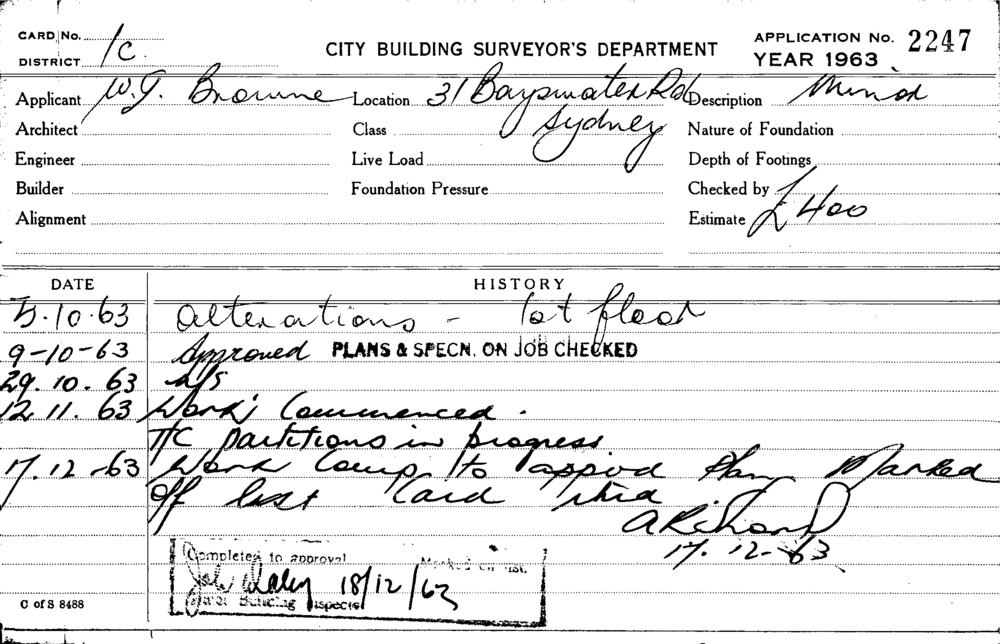 CARD No.
DISTRICT 1c.
CITY BUILDING SURVEYOR'S DEPARTMENT
APPLICATION No. 2247
YEAR 1963
Applicant W.J. Browne Location 31 Bayswater Rd Description Minor
Architect Class Sydney Nature of Foundation
Engineer Live Load Depth of Footings
Builder Foundation Pressure Checked by
Alignment Estimate £400
DATE HISTORY
3.10.63 Alterations - 1st floor
9-10-63 Approved PLANS & SPECN. ON JOB CHECKED
29.10.63 N/S
12.11.63 Work Commenced.
TC partitions in progress
17.12.63 Work Comp to approd Plan Marked
off list Card
17.12.63
Completed to approval Marked off list.
18/12/63
Building Inspector
C of S 8488